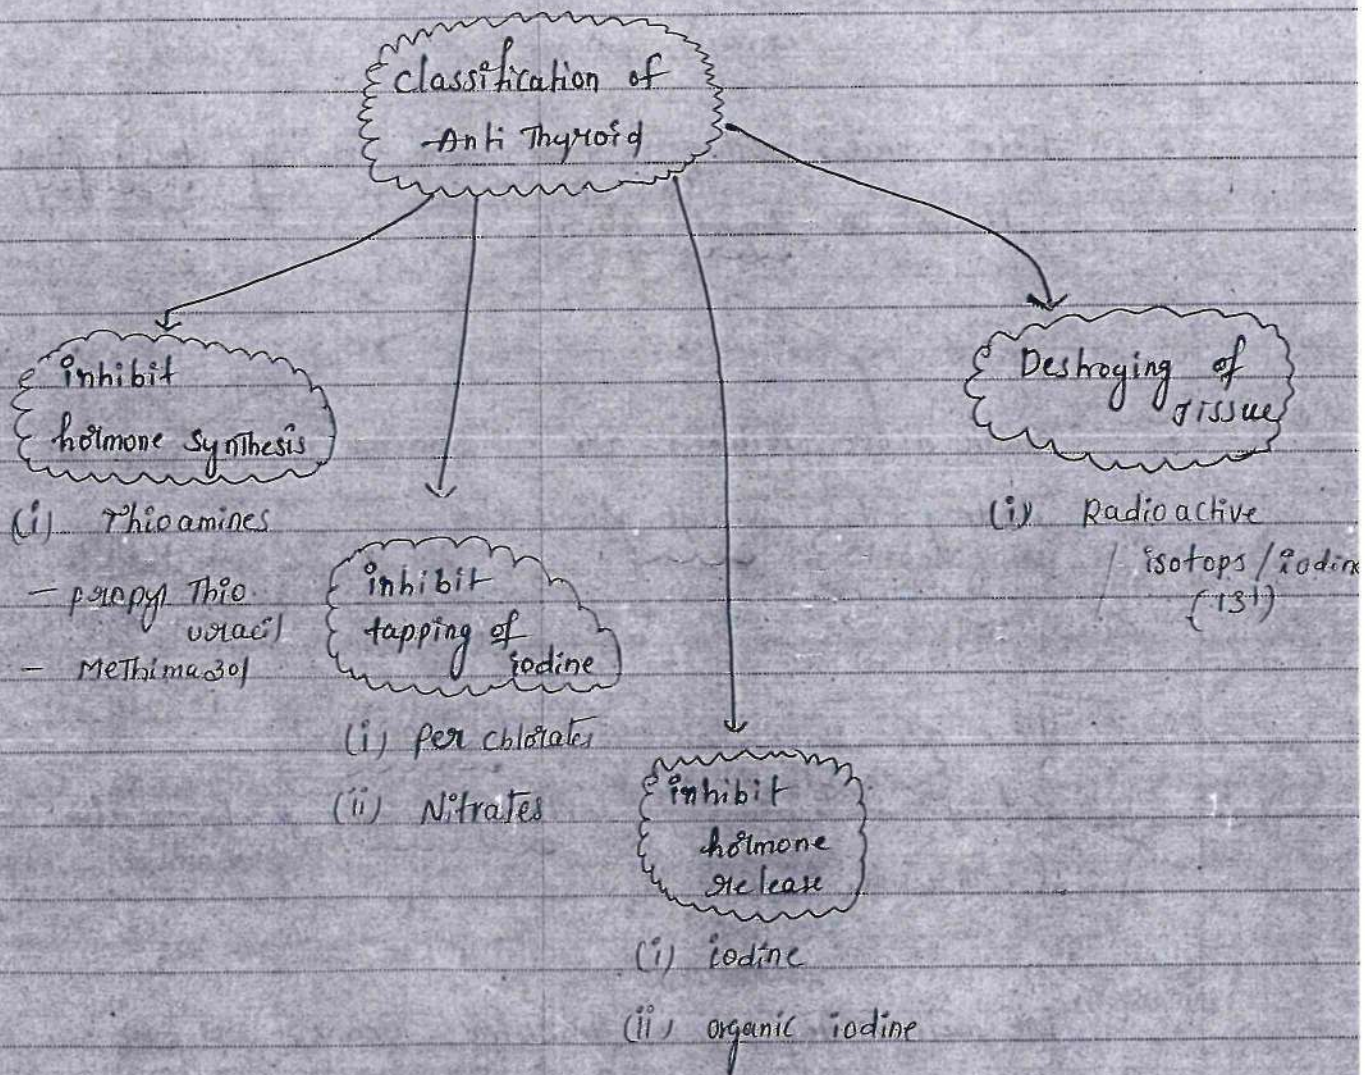 Classification of
Anti Thyroid
inhibit
hormone synthesis
(i) Thioamines
- propyl Thio
uracil
- Methimazol
inhibit
tapping of
iodine
(i) Per chlorates
(ii) Nitrates
inhibit
hormone
release
(i) iodine
(ii) organic iodine
Destroying of
Tissue
(i) Radioactive
isotops / iodin
(131)